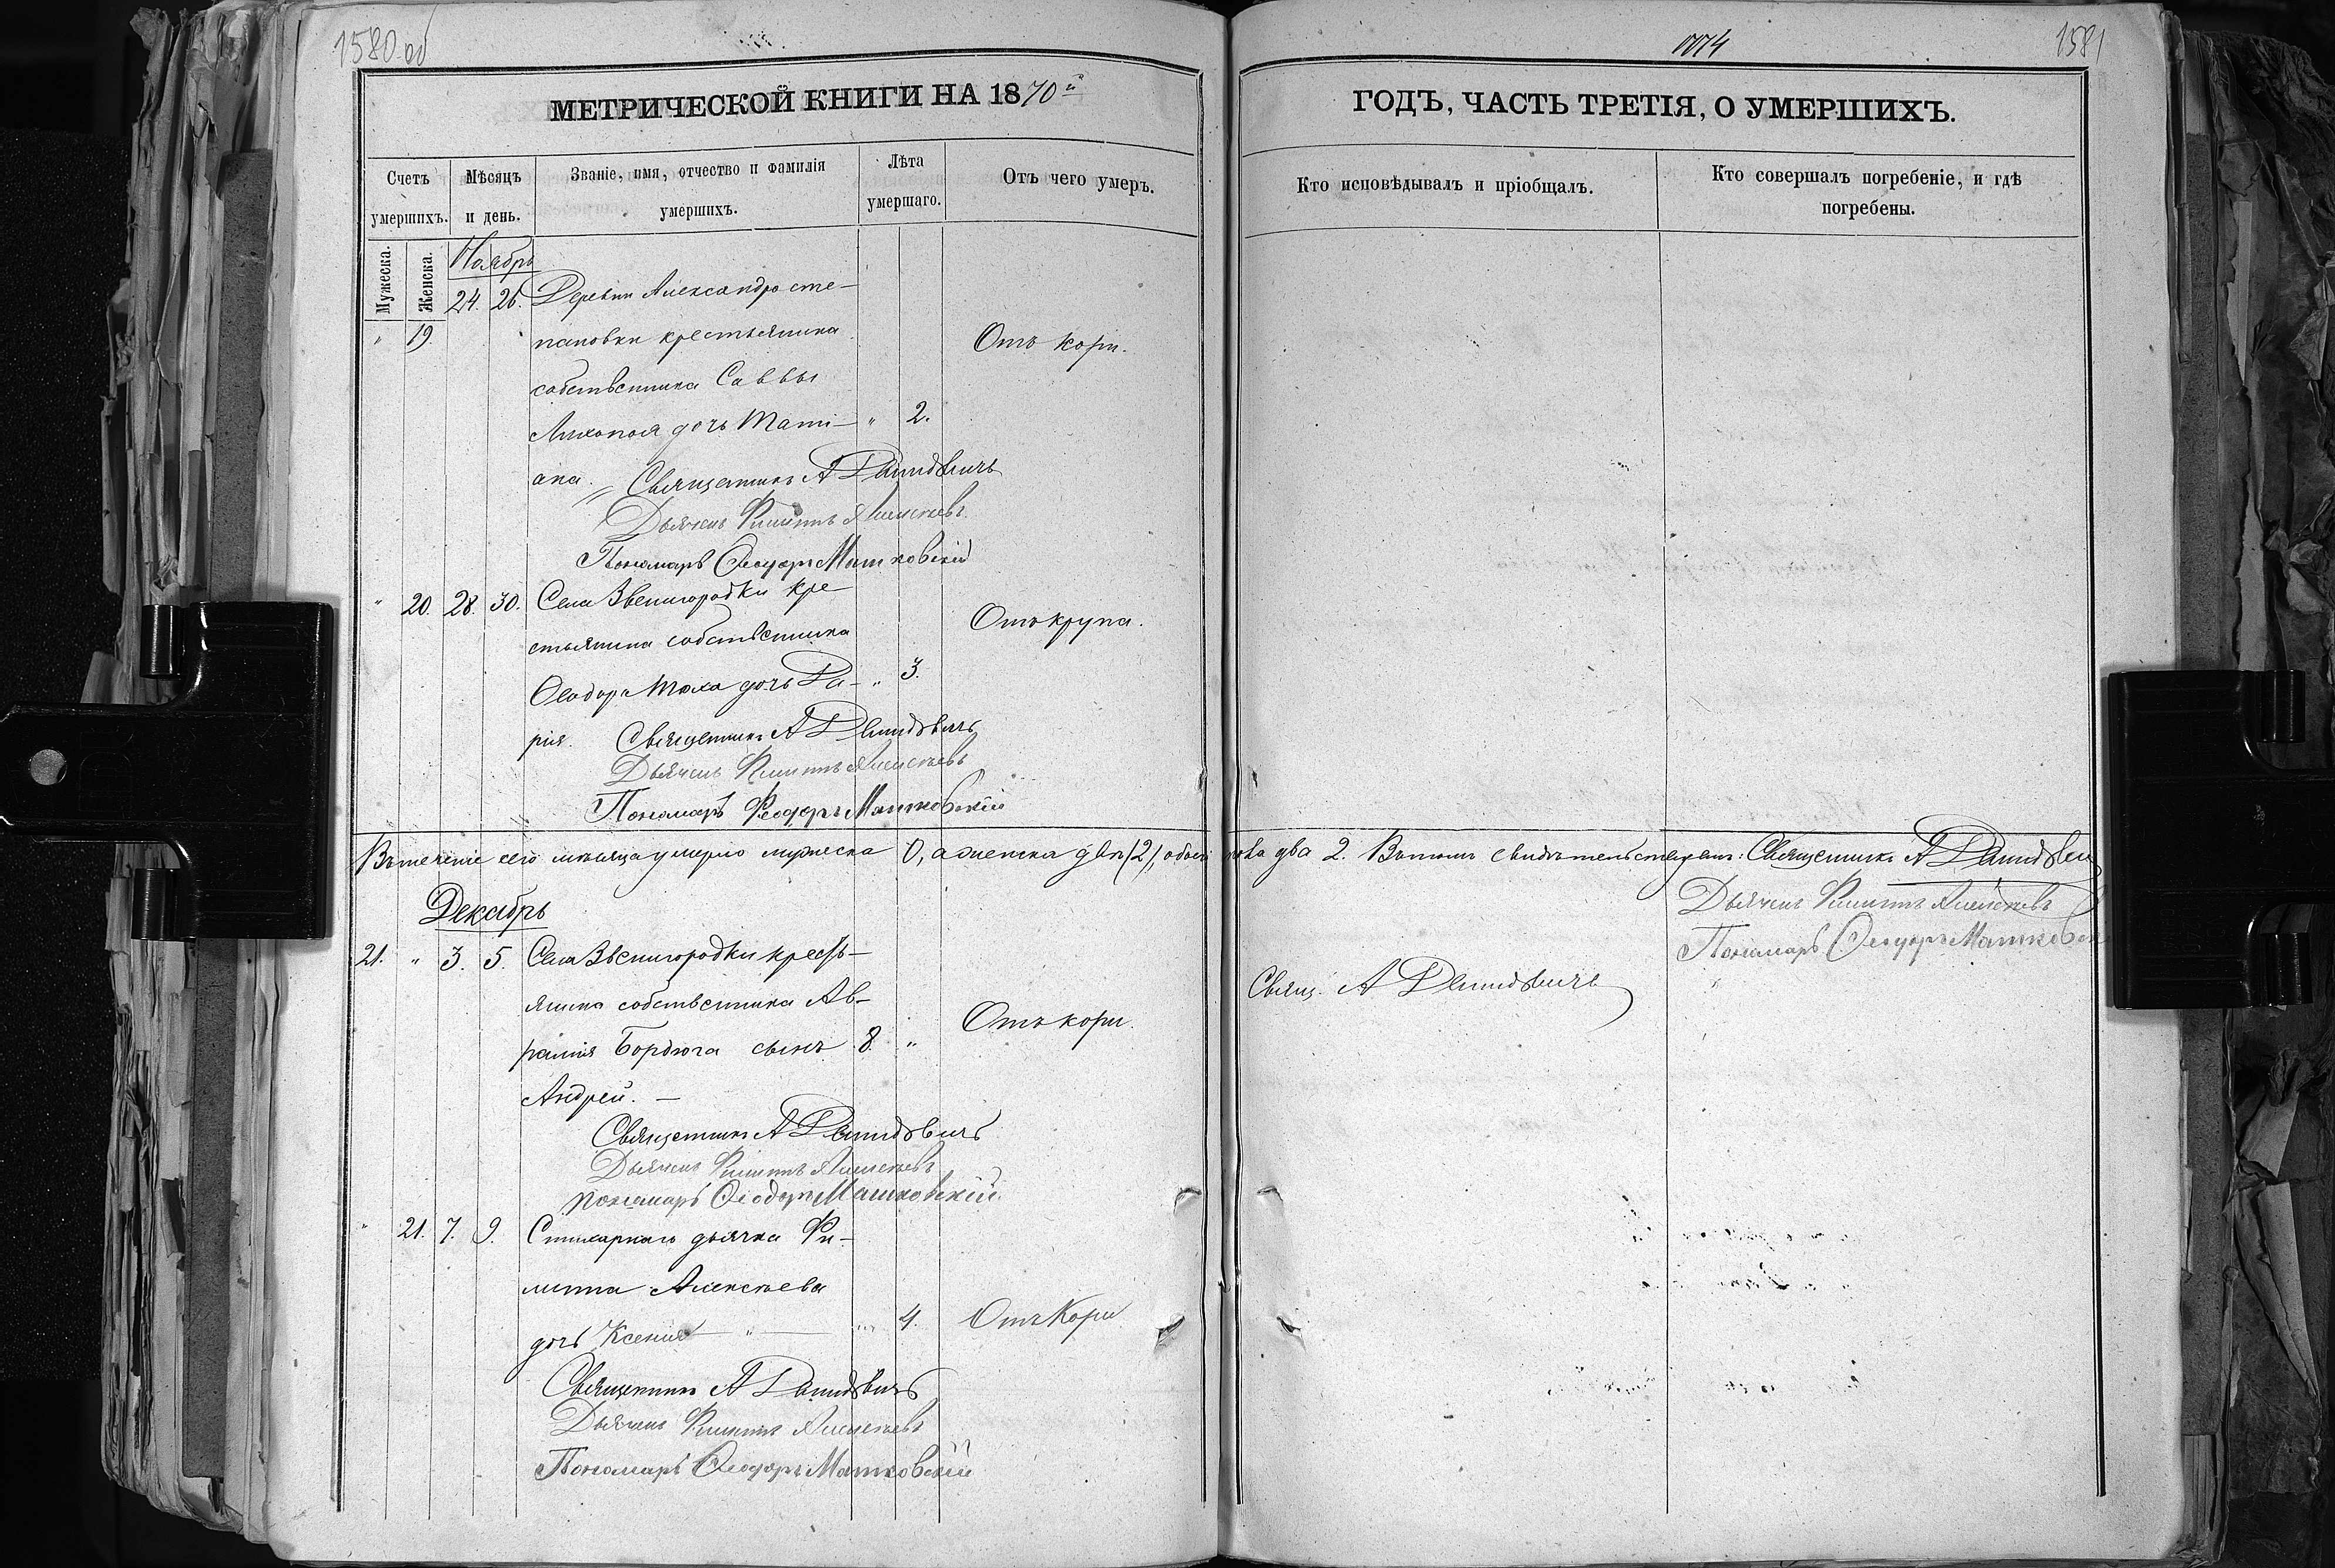 1580 об
1074
1581
МЕТРИЧЕСКОЙ КНИГИ НА 1870й
ГОДЪ, ЧАСТЬ ТРЕТІЯ, О УМЕРШИХЪ.
Счетъ умершихъ.
Мѣсяцъ и день.
Званіе, имя, отчество и фамилія умершихъ.
Лѣта умершаго.
Отъ чего умеръ.
Кто исповѣдывалъ и пріобщалъ.
Кто совершалъ погребеніе, и гдѣ погребены.
Мужеска.
Женска.
Ноябрь
24. 26. Деревни Александросте-
" 19. пановки крестьянина
Отъ кори.
собственника Саввы
дочь Тати- " 2.
ана. Священникъ А Давидовичъ
Дьячекъ Филиппъ Алексѣевъ
Пономарь Ѳеодоръ Машковскій
" 20. 28. 30. Села Звенигородки кре-
стьянина собственника
Отъ крупа.
Ѳеодора Тюха дочь Да- " 3.
рія. Священникъ А Давидовичъ
Дьячекъ Филиппъ Алексѣевъ
Пономарь Феодоръ Машковскій
Въ теченіе сего мѣсяца умерло мужеска 0, а женска двѣ (2), обоего пола два 2. Въ томъ свидѣтельствуемъ: Священникъ А Давидович
Дьячекъ Филиппъ Алексѣевъ
Пономарь Ѳеодоръ Машковск
Декабрь
21. " 3. 5. Села Звенигородки кресть-
янина собственника Ав-
рамія Бордюга сынъ 8. "
Отъ кори.
Андрей. —
Свящ. А Давидовичъ
Священникъ А Давидовичъ
Дьячекъ Филиппъ Алексѣевъ
пономарь Ѳеодоръ Машковскій
" 21. 7. 9. Стихарнаго дьячка Фи-
липпа Алексѣева
дочь Ксенія — " — " 4. Отъ Кори
Священникъ А Давидовичъ
Дьячекъ Филиппъ Алексѣевъ
Пономарь Ѳеодоръ Машковскій